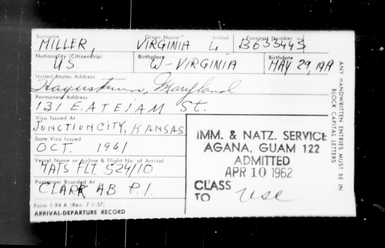 Surname Given Name Initial Passport Number
MILLER, VIRGINIA L B633443
Nationality (Citizenship) Birthplace Birthdate
US W-VIRGINIA MAY 29, 1919
United States Address
Hagerstown, Maryland
Permanent Address
131 E. ATEIAM St.
Visa Issued At
JUNCTION CITY, KANSAS
Date Visa Issued
OCT. 1961
Vessel Name or Airline & Flight No. of Arrival
MATS FLT 524/10
Passenger Boarded At
CLARK AB P.I.
Form I-94 A (Rev. 7-1-57)
ARRIVAL-DEPARTURE RECORD
IMM. & NATZ. SERVICE
AGANA, GUAM 122
ADMITTED
APR 10 1962
CLASS
TO USC
ANY HANDWRITTEN ENTRIES MUST BE IN
BLOCK CAPITAL LETTERS